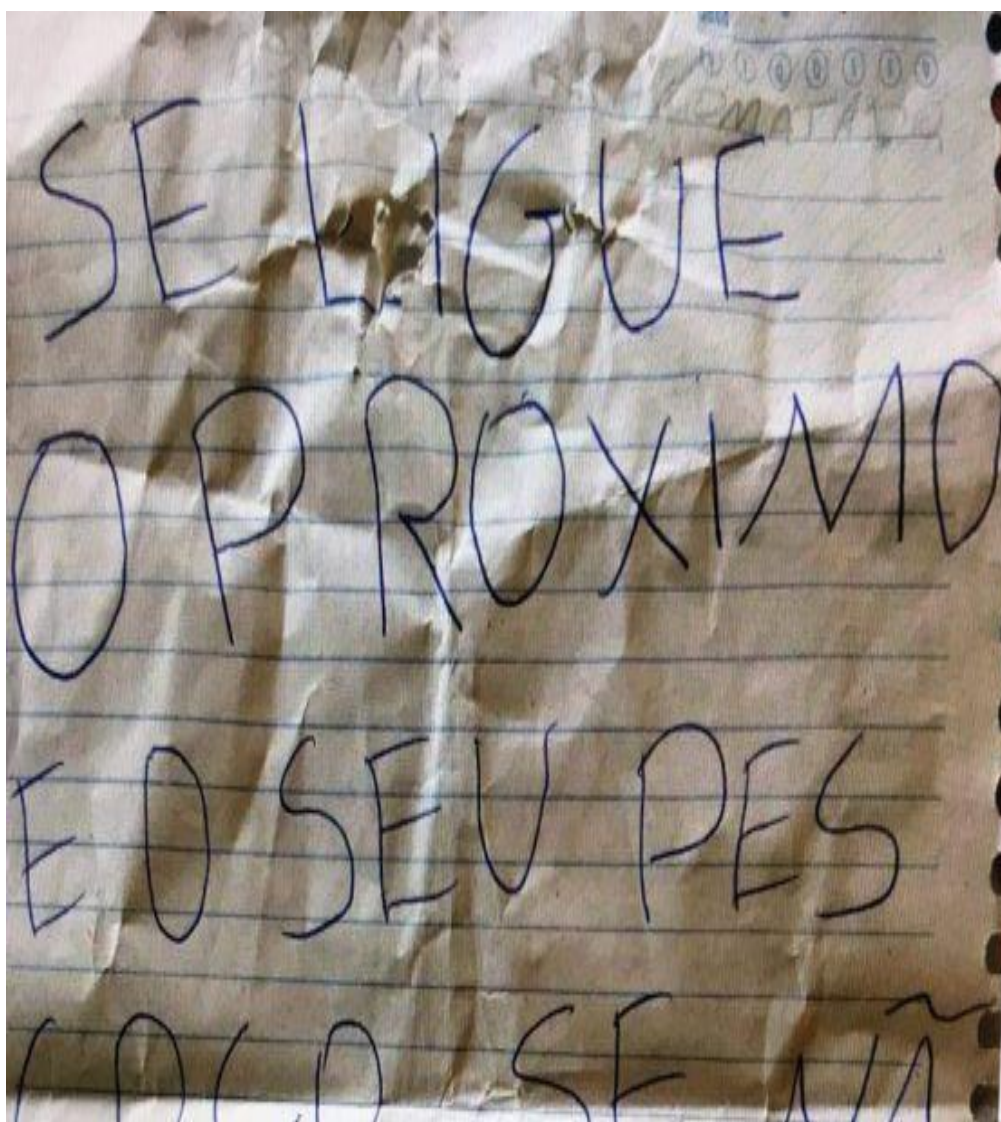 SE LIGUE
O PROXIMO
E O SEU PES
COCO SE NÃ